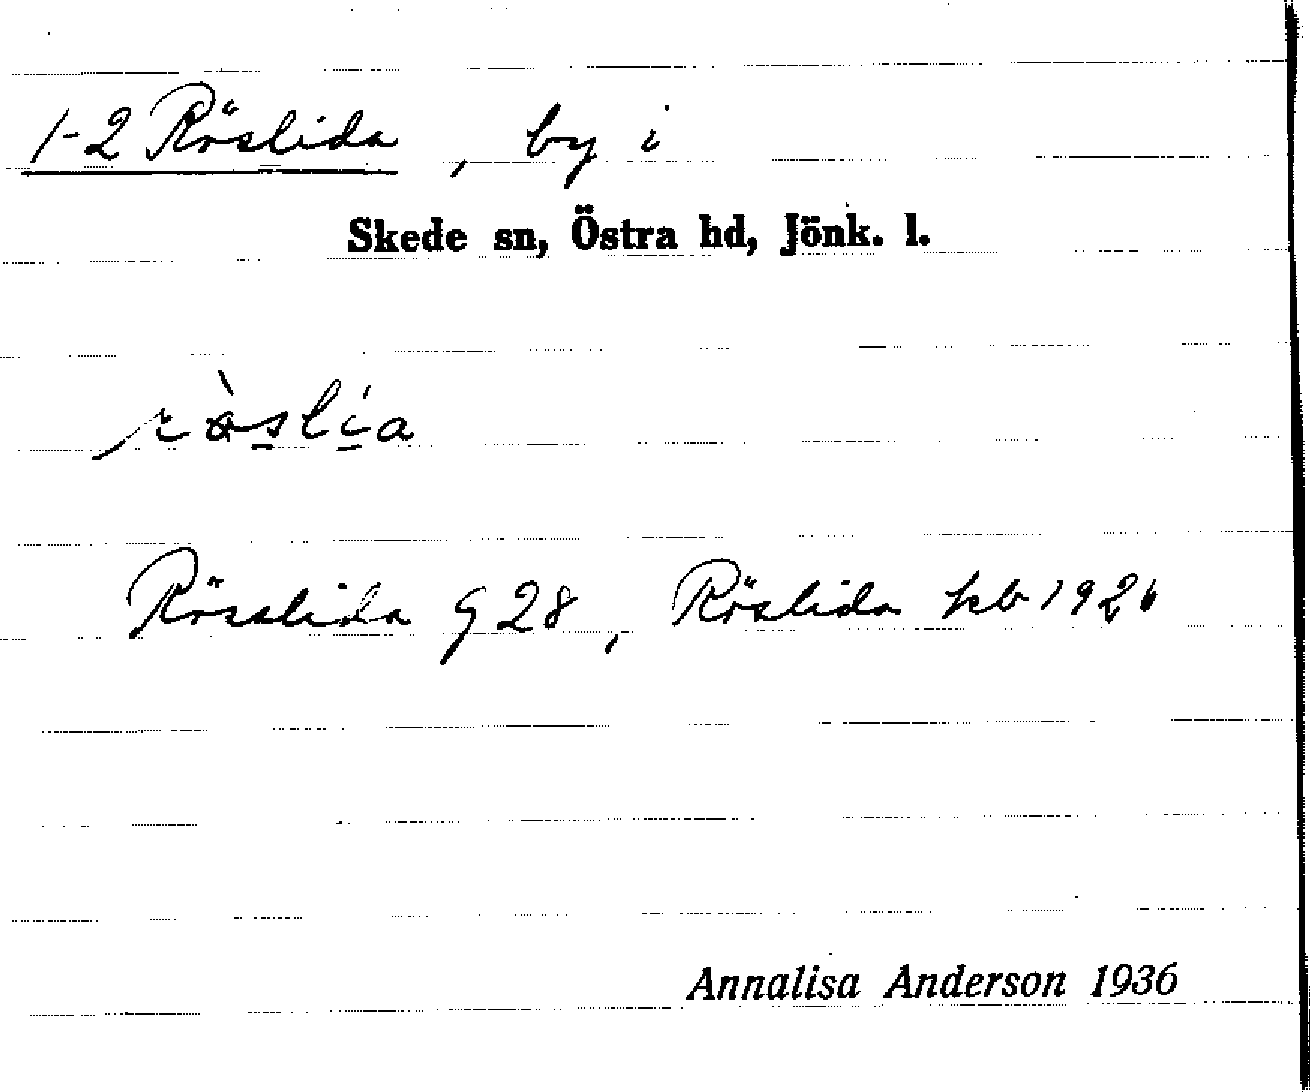 1-2 Röslida, by i
Skede sn, Östra hd, Jönk. l.
Rösslida G 28, Röslida kb 1926
Annalisa Anderson 1936